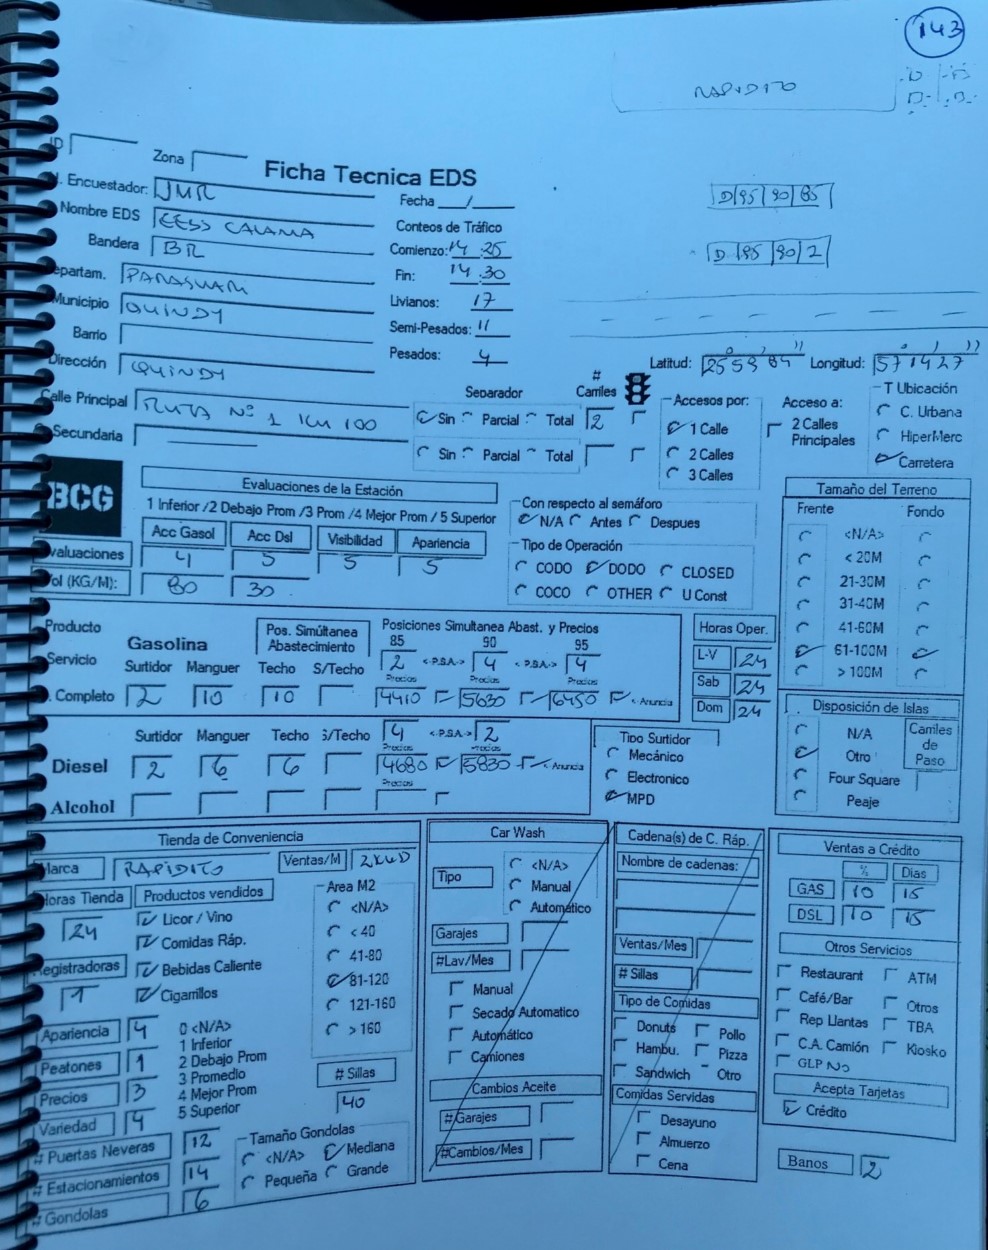 143
RAPIDITO
D D
D D
ID Zona
Ficha Tecnica EDS
Encuestador: JMR
Fecha / /
D|95|90|85
Nombre EDS EESS CALAMA
Conteos de Tráfico
Bandera BR
Comienzo: 14:25
D|85|90|2
Departam. PARAGUARI
Fin: 14:30
Municipio QUINDY
Livianos: 17
Barrio
Semi-Pesados: 11
Dirección QUINDY
Pesados: 4
Latitud: 25 58 84 Longitud: 57 14 27
Calle Principal RUTA Nº 1 KM 100
Separador # Carriles
Sin Parcial Total 2
Secundaria
Sin Parcial Total
Accesos por:
1 Calle
2 Calles
3 Calles
Acceso a:
2 Calles
Principales
T Ubicación
C. Urbana
HiperMerc
Carretera
BCG
Evaluaciones de la Estación
1 Inferior /2 Debajo Prom /3 Prom /4 Mejor Prom / 5 Superior
Acc Gasol Acc Dsl Visibilidad Apariencia
Evaluaciones 4 5 5 5
Vol (KG/M): 80 30
Con respecto al semáforo
N/A Antes Despues
Tipo de Operación
CODO DODO CLOSED
COCO OTHER U Const
Tamaño del Terreno
Frente Fondo
<N/A>
< 20M
21-30M
31-40M
41-60M
61-100M
> 100M
Producto
Servicio
Completo
Gasolina
Pos. Simúltanea
Abastecimiento
Posiciones Simultanea Abast. y Precios
85 90 95
2 <-P.S.A.-> 4 <-P.S.A.-> 4
Surtidor Manguer Techo S/Techo
Precios Precios Precios
2 10 10 4410 5630 6450 <- Anuncia
Horas Oper.
L-V 24
Sab 24
Dom 24
Surtidor Manguer Techo S/Techo 4 <-P.S.A.-> 2
Precios Precios
Diesel 2 6 6 4680 5830 <- Anuncia
Precios
Alcohol
Tipo Surtidor
Mecánico
Electronico
MPD
Disposición de Islas
N/A
Otro
Four Square
Peaje
Carriles
de
Paso
Tienda de Conveniencia
Marca RAPIDITO Ventas/M 2K USD
Horas Tienda 24
Productos vendidos
Licor / Vino
Comidas Ráp.
Bebidas Caliente
Cigarrillos
Registradoras 1
Area M2
<N/A>
< 40
41-80
81-120
121-160
> 160
Apariencia 4
Peatones 1
Precios 3
Variedad 4
0 <N/A>
1 Inferior
2 Debajo Prom
3 Promedio
4 Mejor Prom
5 Superior
# Sillas
40
# Puertas Neveras 12
# Estacionamientos 14
# Gondolas 6
Tamaño Gondolas
<N/A> Mediana
Pequeña Grande
Car Wash
Tipo
<N/A>
Manual
Automático
Garajes
#Lav/Mes
Manual
Secado Automatico
Automático
Camiones
Cambios Aceite
#Garajes
#Cambios/Mes
Cadena(s) de C. Ráp.
Nombre de cadenas:
Ventas/Mes
# Sillas
Tipo de Comidas
Donuts Pollo
Hambu. Pizza
Sandwich Otro
Comidas Servidas
Desayuno
Almuerzo
Cena
Ventas a Crédito
% Dias
GAS 10 15
DSL 10 15
Otros Servicios
Restaurant ATM
Café/Bar Otros
Rep Llantas TBA
C.A. Camión Kiosko
GLP No
Acepta Tarjetas
Crédito
Banos 2